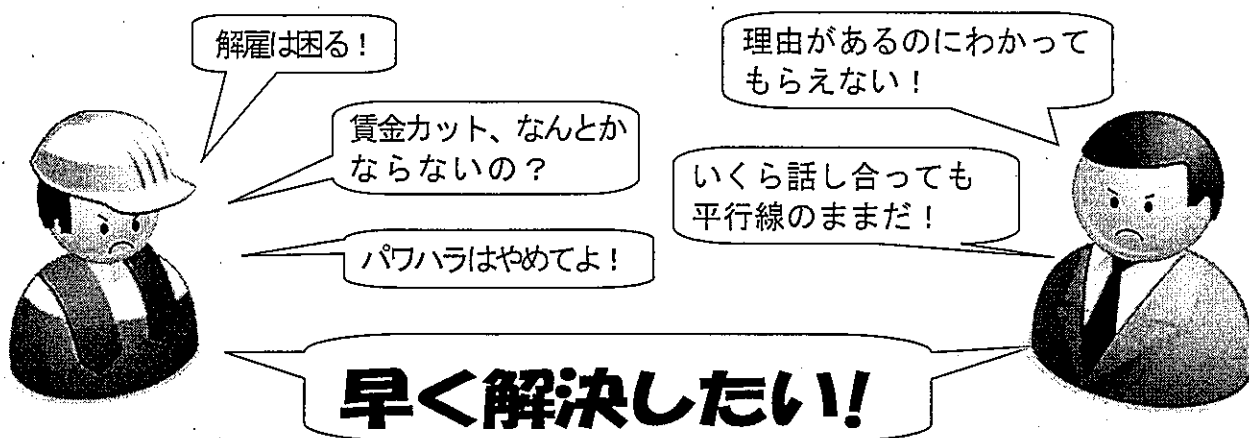 解雇は困る！
賃金カット、なんとか
ならないの？
パワハラはやめてよ！
理由があるのにわかって
もらえない！
いくら話し合っても
平行線のままだ！
早く解決したい！